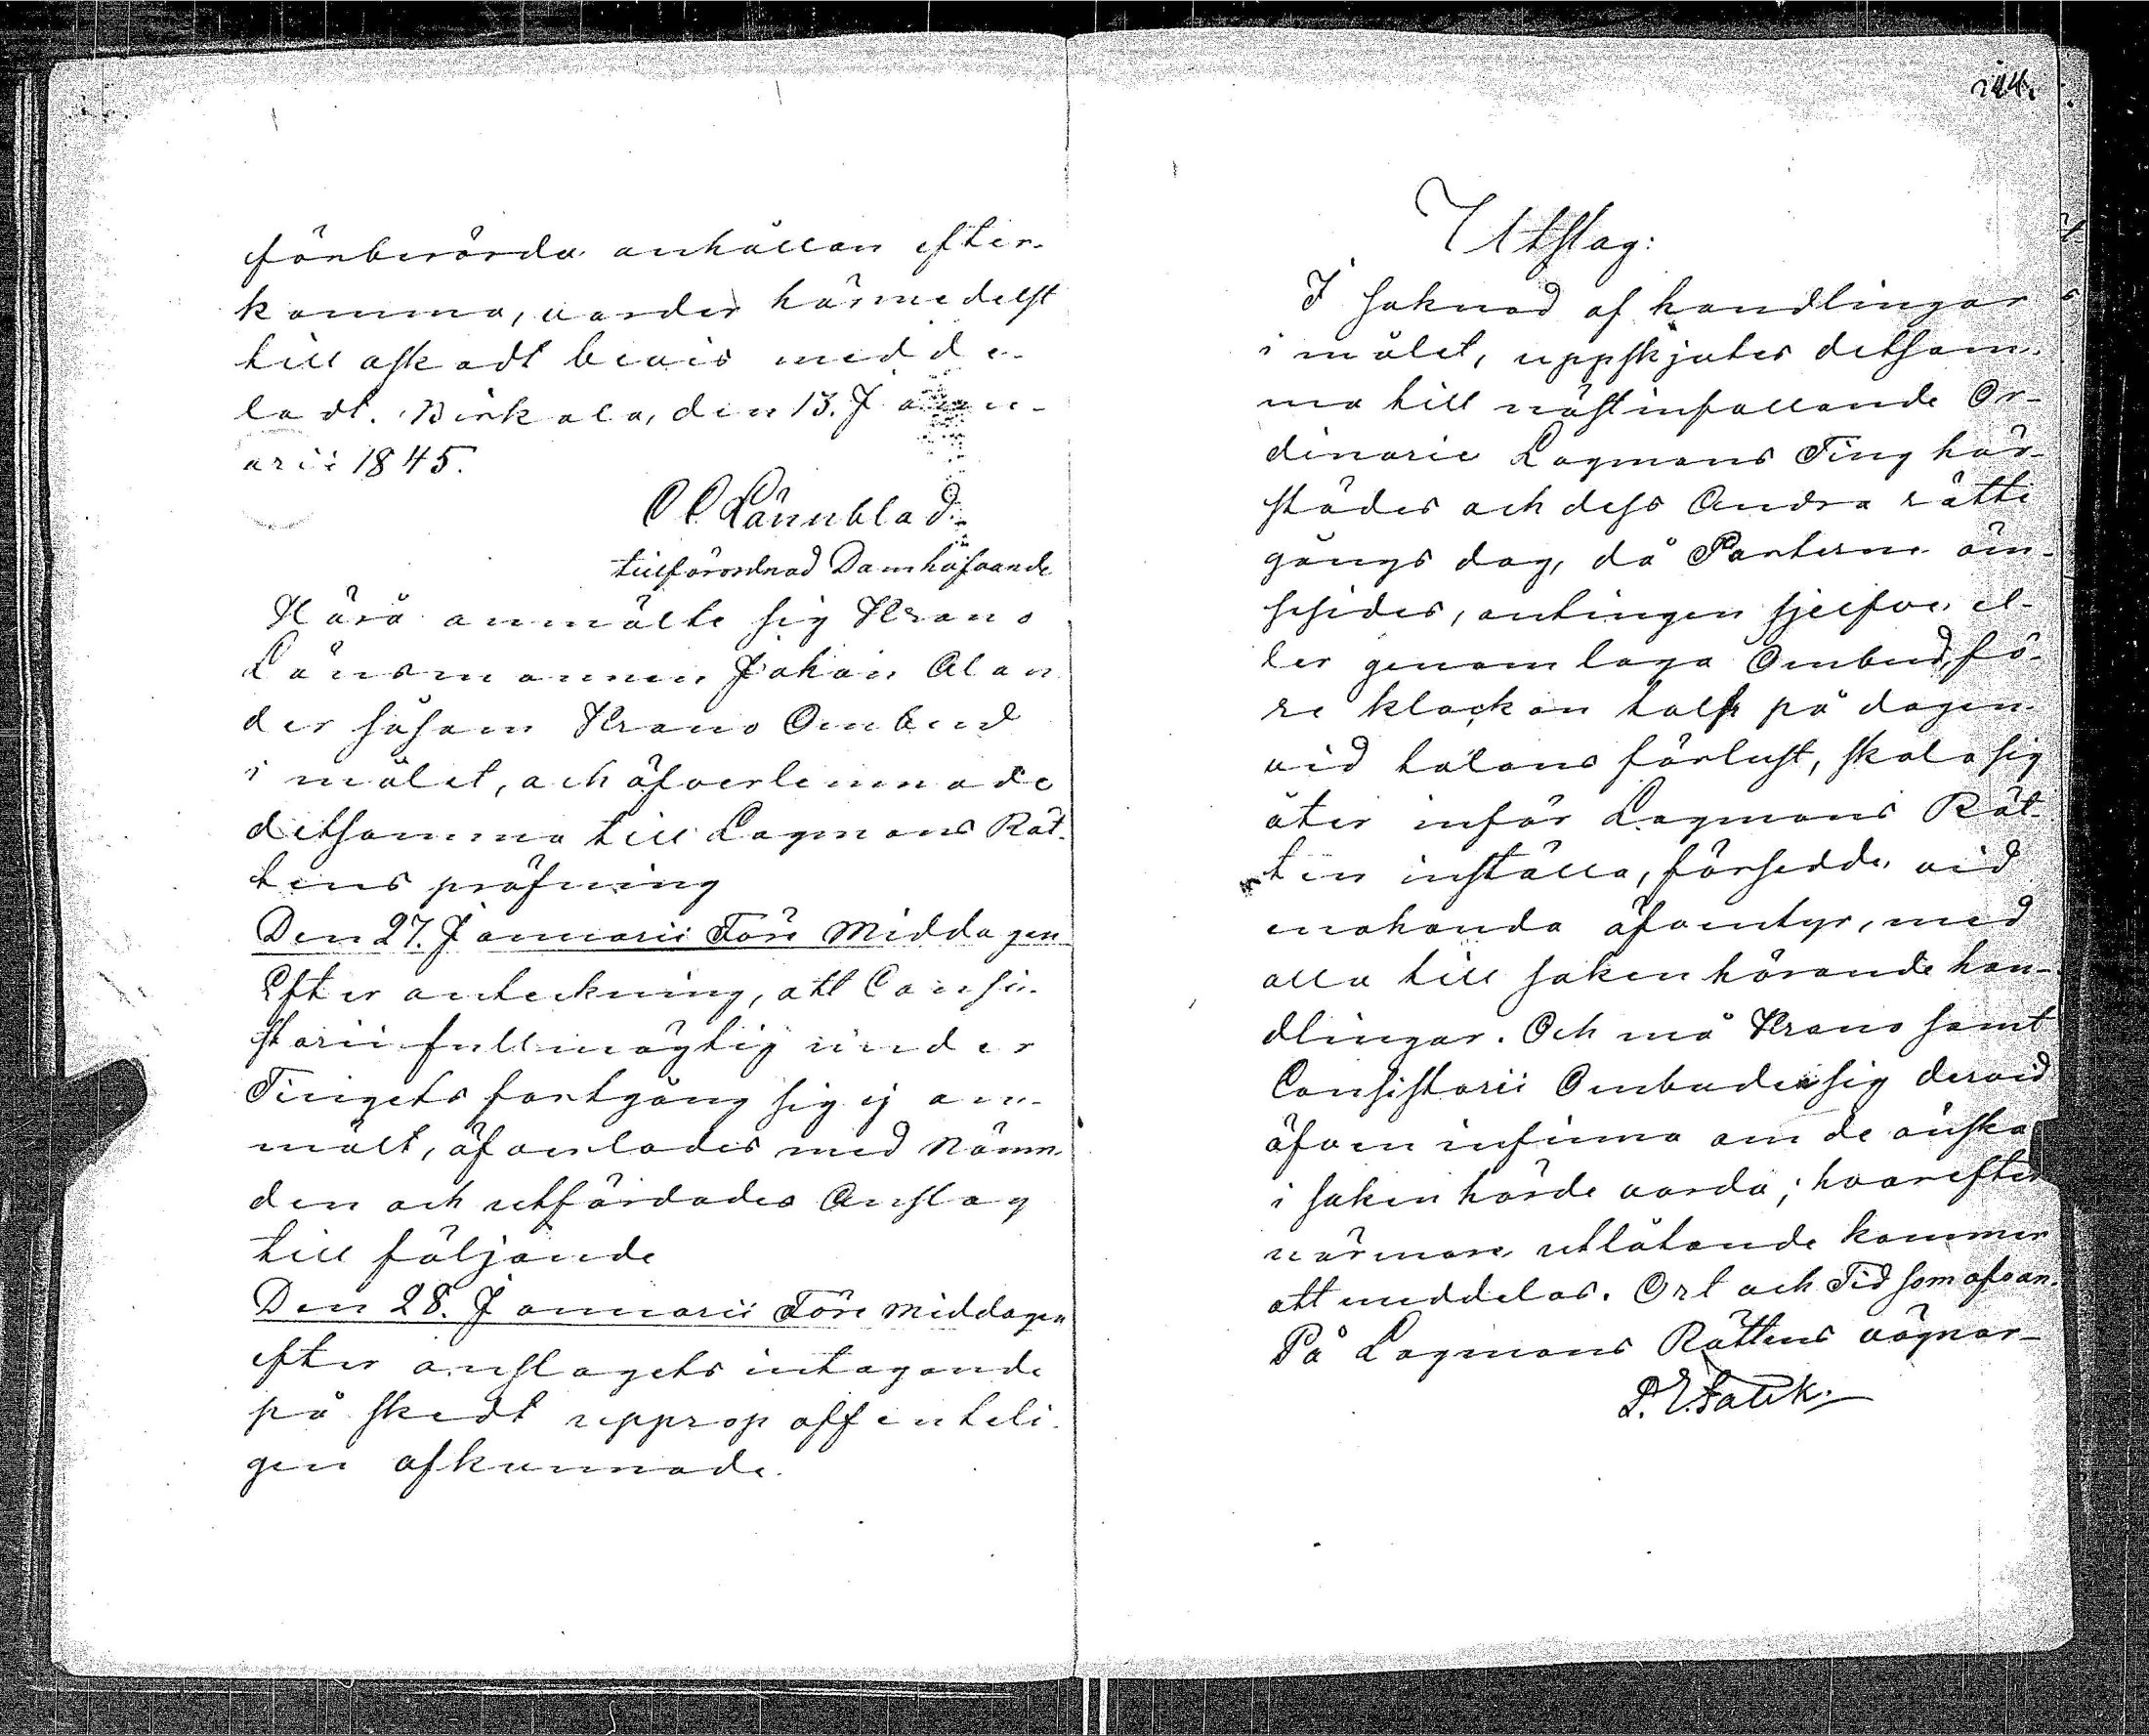 förberörda anhållan efter-
komma, varder härmedelst
till äskadt bevis medde-
ladt. Birkala, den 13. Janu-
arii 1845.
C C. Lönnblad.
tillförordnad Domhafvande
Härå anmälte sig Krono
Länsmannen Johan Alan
der såsom Krono Ombud
i målet, och öfverlemnade
detsamma till Lagmans Rät-
tens pröfning
Den 27. Januarii Före Middagen
Efter anteckning, att Consi-
storii fullmägtig under
Tingets fortgång sig ej an-
mält, öfverlades med Nämn-
den och utfärdades Anslag
till följande
Den 28. Januarii Före middagen
efter anslagets intagande
på skedt upprop offenteli-
gen afkunnade.
244.
Utslag:
I saknad af handlingar
i målet, uppskjutes detsam-
ma till nästinfallande Or-
dinarie Lagmans Ting här-
städes och dess Andra rätte
gångs dag, då Parterne öm-
sesides, antingen sjelfve el-
ler genom laga Ombud, fö-
re klockan tolf på dagen
vid talans förlust, skola sig
åter inför Lagmans Rät-
ten inställa, försedde vid
enahanda äfventyr, med
alla till saken hörande han-
dlingar. Och må Krono samt
Consistorii Ombuden sig dervid
äfven infinna om de önska
i saken hörde varda; hvarefter
närmare utlåtande kommer
att meddelas. Ort och Tid som ofvan.
På Lagmans Rättens vägnar
P. E. Falck.